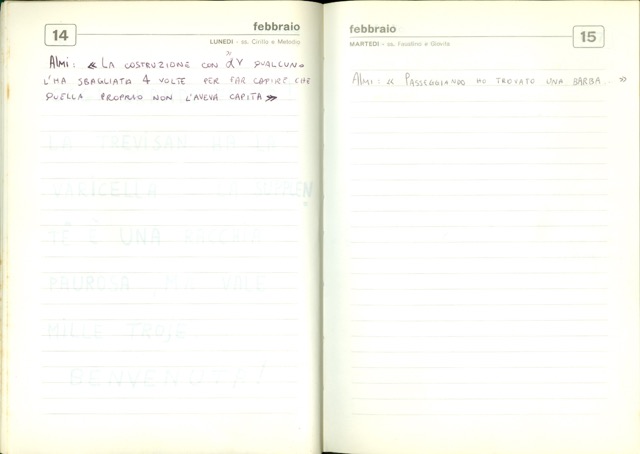 14
febbraio
LUNEDÌ - ss. Cirillo e Metodio
Almi: « LA COSTRUZIONE CON QUALCUNO
L'HA SBAGLIATA 4 VOLTE PER FAR CAPIRE CHE
QUELLA PROPRIO NON L'AVEVA CAPITA »
LA TREVISAN HA LA
VARICELLA
È UNA
PAUROSA VALE
MILLE TROIE
BENVENUTA!
febbraio
15
MARTEDÌ - ss. Faustino e Giovita
Almi: « PASSEGGIANDO HO TROVATO UNA BARBA... »